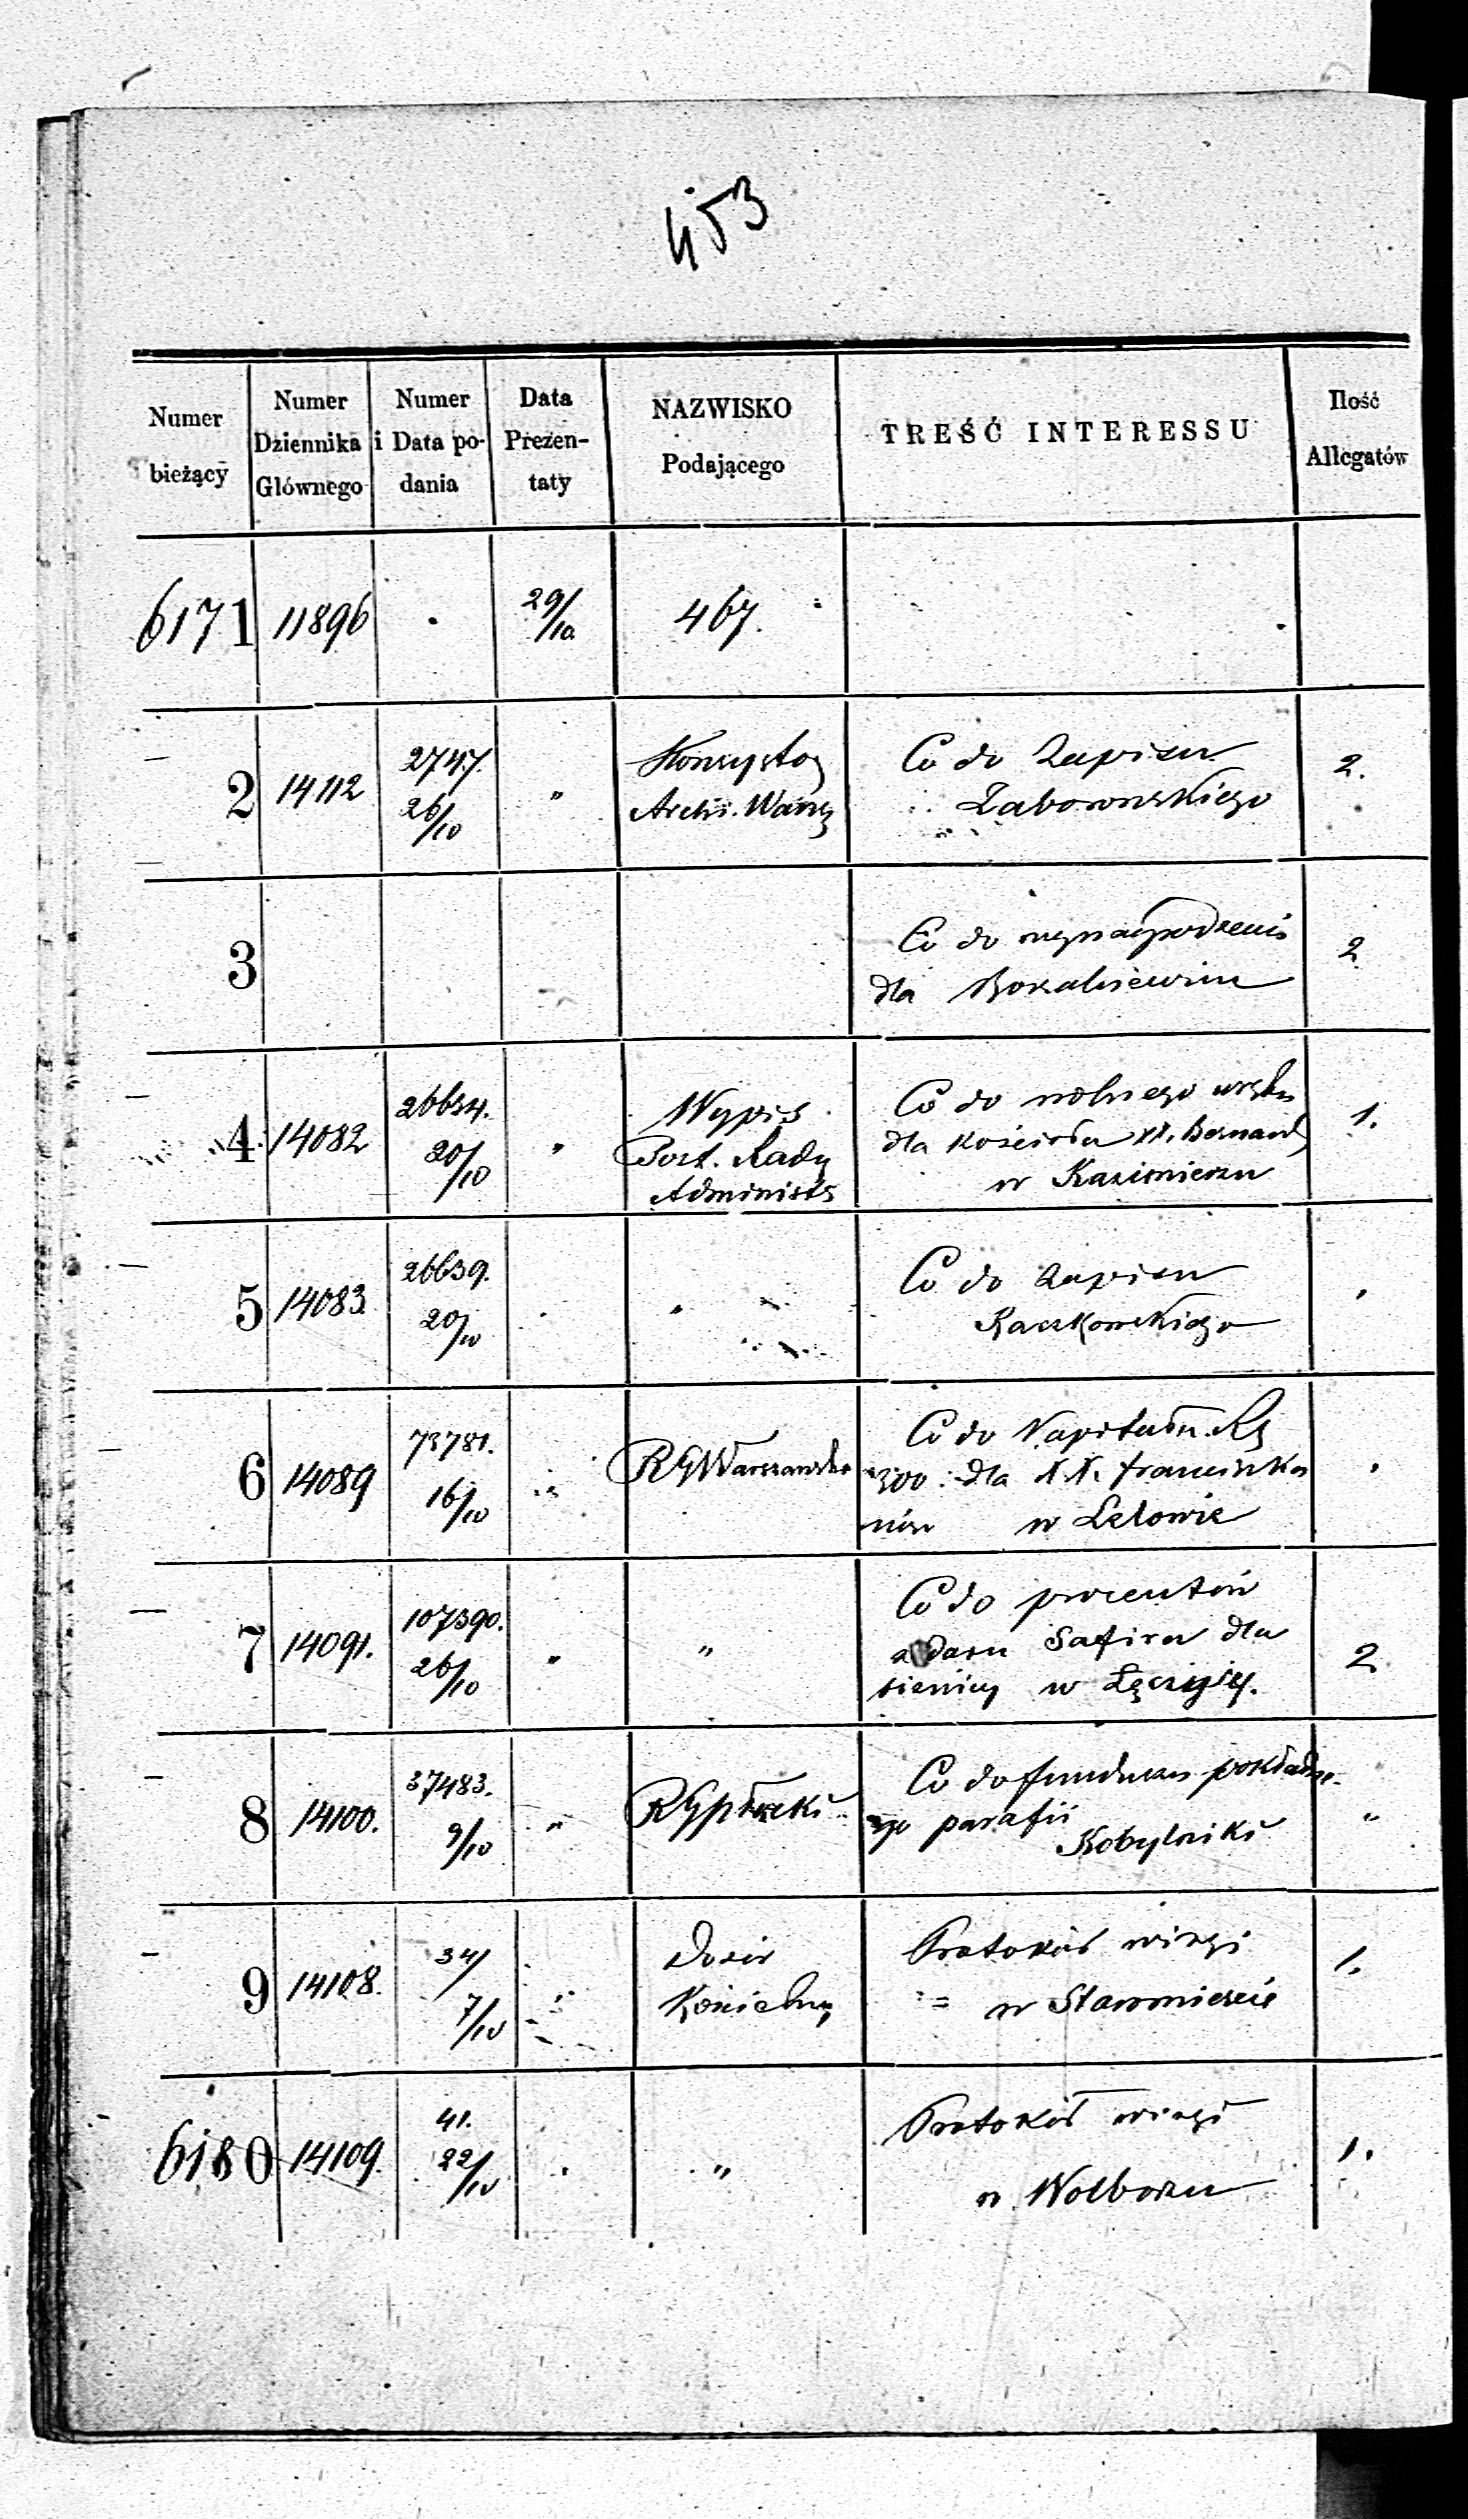 453
Numer bieżący | Numer Dziennika Głównego | Numer i Data podania | Data Prezentaty | NAZWISKO Podającego | TREŚĆ INTERESSU | Ilość Allegatów
6171 | 11896 | . | 29/10 | 467. | |
2 | 14112 | 2747. 26/10 | " | Konsystor Archi. Warsz | Co do Zapisu Zaborowskiego | 2.
3 | | | | | Co do wynagrodzenia dla | 2
4 | 14082 | 26634. 20/10 | " | Wypis Post. Rady Administr | Co do wolnego dla kościoła XX. Bernard w Kazimierzu | 1.
5 | 14083 | 26639. 20/10 | . | " | Co do Zapisu Raczkowskiego | .
6 | 14089 | 73781. 16/10 | " | RG Warszawski | Co do Kapitału Rs 300 dla X.X. Franciszkanów w Lelowie | .
7 | 14091. | 107390. 26/10 | " | " | Co do procentów z daru Safira dla w Łęczycy. | 2
8 | 14100. | 37483. 9/10 | " | RG Płocki | Co do funduszu pokładnego parafii Kobylniki | "
9 | 14108. | 34/ 7/10 | " | Dozór Kościelny | Protokół w Staromieście | 1.
6180 | 14109. | 41. 22/10 | . | " | Protokół w Wolborzu | 1.